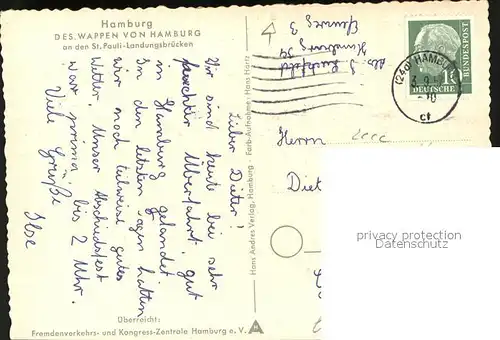 Hamburg
DES. WAPPEN VON HAMBURG
an den St. Pauli-Landungsbrücken
Lieber Dieter!
Wir sind heute bei sehr
feuchter Überfahrt, gut
in Hamburg gelandet.
In den letzten Tagen hatten
wir noch teilweise gutes
Wetter. Unser Abschiedsfest
war prima, bis 2 Uhr.
Viele Grüße
Ilse
Überreicht:
Fremdenverkehrs- und Kongress-Zentrale Hamburg e. V.
Hans Andres Verlag, Hamburg · Farb-Aufnahme: Hans Hartz
Hamburg 34
3
(24a) HAMBURG
cf
10
DEUTSCHE
BUNDESPOST
Herrn
Diet
privacy protection
Datenschutz